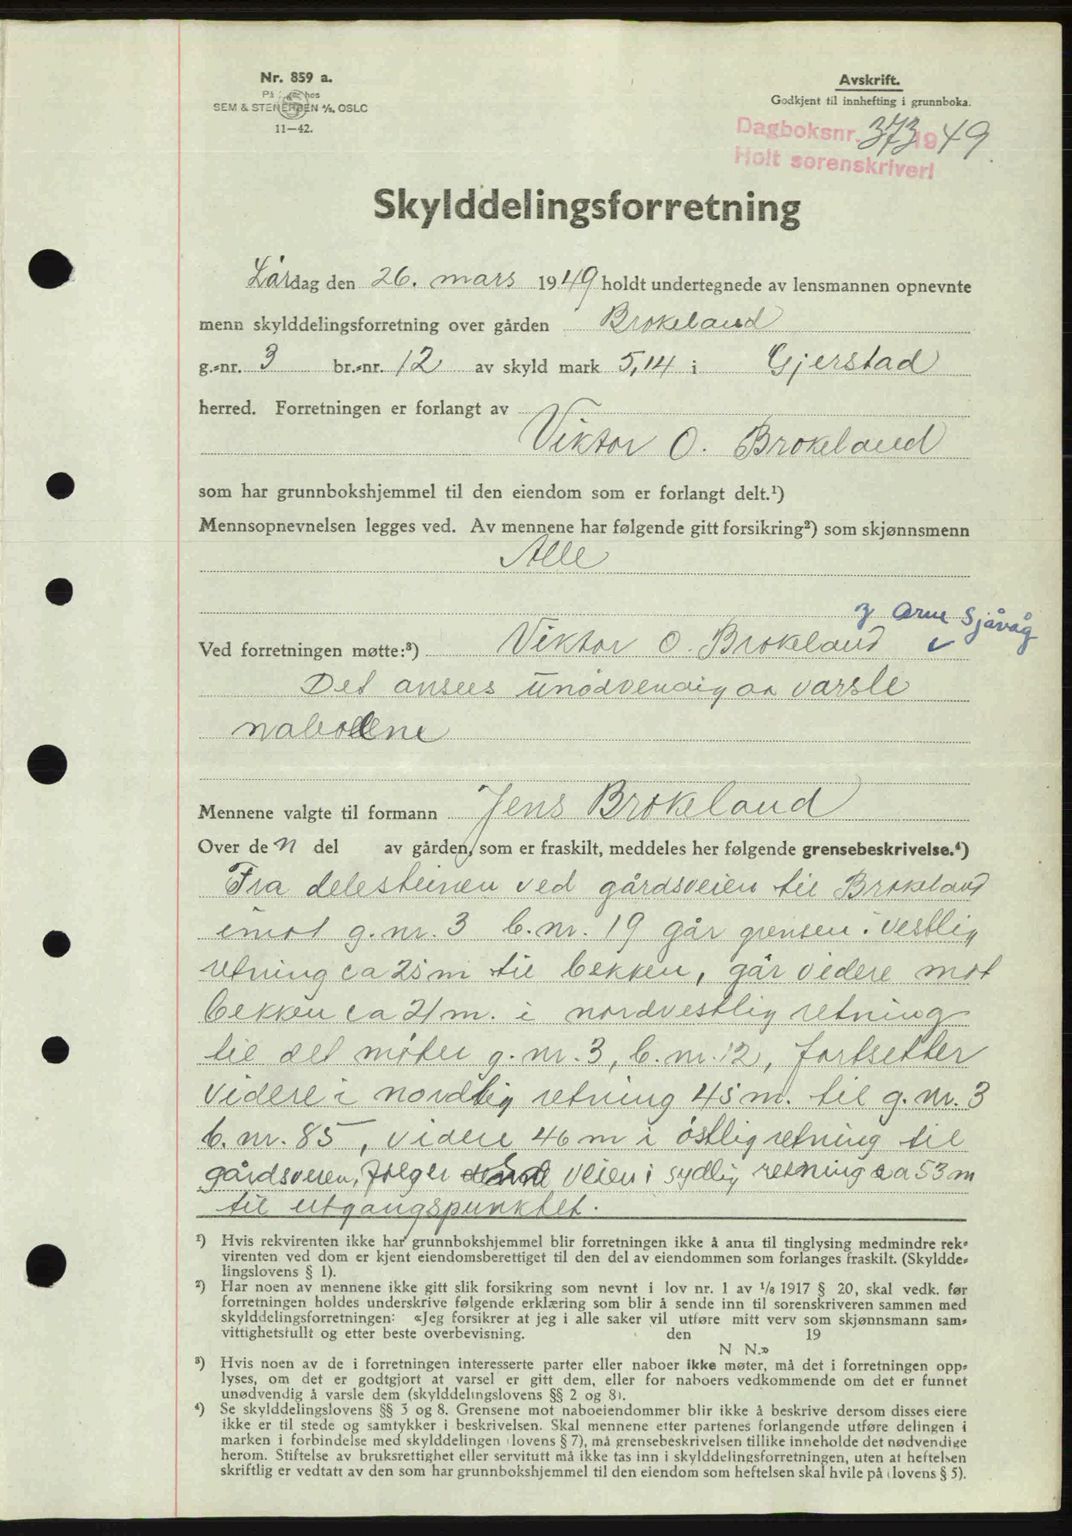 Nr. 859 a.
På lager hos
SEM & STENERSEN A/S, OSLO
11—42.
Avskrift.
Godkjent til innhefting i grunnboka.
Dagboksnr. 373 1949.
Holt sorenskriveri
Skylddelingsforretning
Lørdag den 26. mars 1949 holdt undertegnede av lensmannen opnevnte
menn skylddelingsforretning over gården Brokeland
g.-nr. 3 br.-nr. 12 av skyld mark 5,14 i Gjerstad
herred. Forretningen er forlangt av
Viktor O. Brokeland
som har grunnbokshjemmel til den eiendom som er forlangt delt.¹)
Mennsopnevnelsen legges ved. Av mennene har følgende gitt forsikring²) som skjønnsmenn
Alle
Arne Sjåvåg
Ved forretningen møtte:³) Viktor O. Brokeland
Det ansees unødvendig aa varsle
naboene
Mennene valgte til formann Jens Brokeland
Over de n del av gården, som er fraskilt, meddeles her følgende grensebeskrivelse.⁴)
Fra delesteinen ved gårdsveien til Brokeland
imot g.nr. 3 b.nr. 19 går grensen i vestlig
retning ca 25 m til bekken, går videre mot
bekken ca 21 m. i nordvestlig retning
til det møter g.nr. 3, b.nr. 12, fortsetter
videre i nordlig retning 45 m. til g.nr. 3
b.nr. 85, videre 46 m i østlig retning til
gårdsveien, følger veien i sydlig retning ca 53 m
til utgangspunktet.
¹) Hvis rekvirenten ikke har grunnbokshjemmel blir forretningen ikke å anta til tinglysing medmindre rek-
virenten ved dom er kjent eiendomsberettiget til den del av eiendommen som forlanges fraskilt. (Skyldde-
lingslovens § 1).
²) Har noen av mennene ikke gitt slik forsikring som nevnt i lov nr. 1 av 1/8 1917 § 20, skal vedk. før
forretningen holdes underskrive følgende erklæring som blir å sende inn til sorenskriveren sammen med
skylddelingsforretningen: «Jeg forsikrer at jeg i alle saker vil utføre mitt verv som skjønnsmann sam-
vittighetsfullt og etter beste overbevisning. den 19
N N.»
³) Hvis noen av de i forretningen interesserte parter eller naboer ikke møter, må det i forretningen opp-
lyses, om det er godtgjort at varsel er gitt dem, eller for naboers vedkommende om det er funnet
unødvendig å varsle dem (skylddelingslovens §§ 2 og 8).
⁴) Se skylddelingslovens §§ 3 og 8. Grensene mot naboeiendommer blir ikke å beskrive dersom disses eiere
ikke er til stede og samtykker i beskrivelsen. Skal mennene etter partenes forlangende utføre delingen i
marken i forbindelse med skylddelingen (lovens § 7), må grensebeskrivelsen tillike inneholde det nødvendige
herom. Stiftelse av bruksrettighet eller servitutt må ikke tas inn i skylddelingsforretningen, uten at heftelsen
skriftlig er vedtatt av den som har grunnbokshjemmel til den eiendom som heftelsen skal hvile på (lovens § 5).